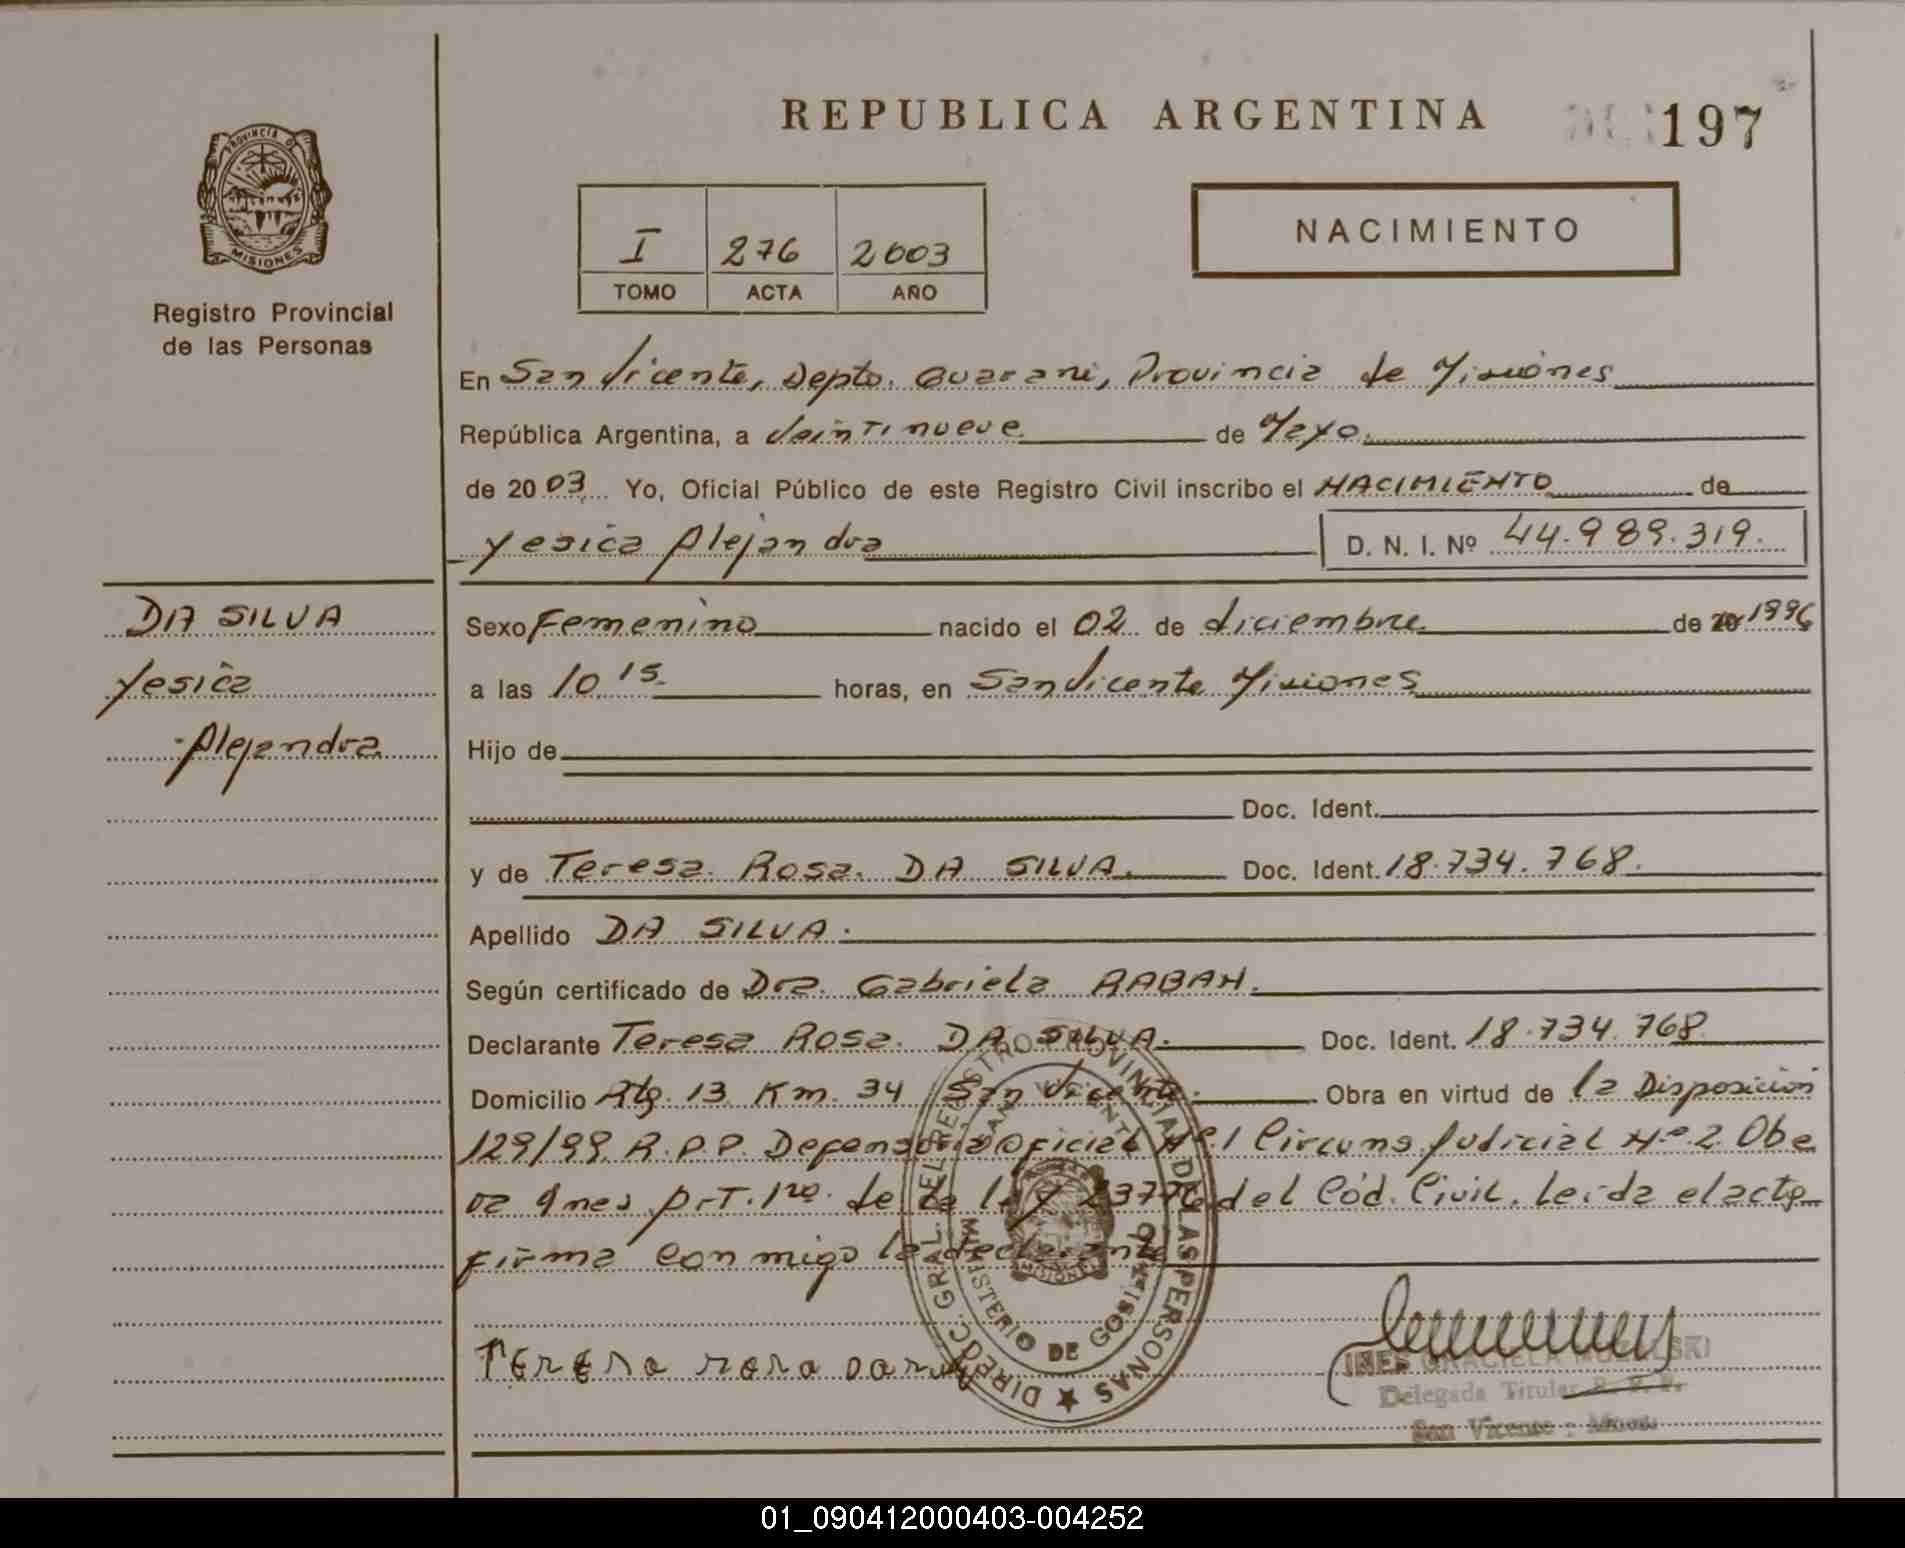 REPUBLICA ARGENTINA
197
PROVINCIA DE
MISIONES
Registro Provincial
de las Personas
I 276 2003
TOMO ACTA AÑO
NACIMIENTO
En San Vicente, Depto. Guarani, Provincia de Misiones
República Argentina, a Veintinueve de Mayo
de 2003 Yo, Oficial Público de este Registro Civil inscribo el NACIMIENTO de
Yesica Alejandra D. N. I. Nº 44.989.319.
DA SILVA
Yesica
Alejandra
Sexo Femenino nacido el 02 de diciembre de 20 1996
a las 10 15 horas, en San Vicente Misiones
Hijo de
Doc. Ident.
y de Teresa Rosa DA SILVA. Doc. Ident. 18.734.768.
Apellido DA SILVA.
Según certificado de Dra. Gabriela
Declarante Teresa Rosa DA SILVA. Doc. Ident. 18.734.768
Domicilio Rta. 13 Km. 34 San Vicente. Obra en virtud de la Disposición
129/99 R.P.P. Defensoria Oficial Nº 1 Circuns. Judicial Nº 2 Obe
ra Mnes Art. 1ro. de la ley 23776 del Cód. Civil. Leida el acta
firma conmigo la declarante
DIREC. GRAL. DEL REGISTRO PROVINCIAL DE LAS PERSONAS
SAN VICENTE
MINISTERIO DE GOBIERNO
MISIONES
TERESA ROSA
INES GRACIELA
Delegada Titular R. P. P.
San Vicente - Mnes.
01_090412000403-004252